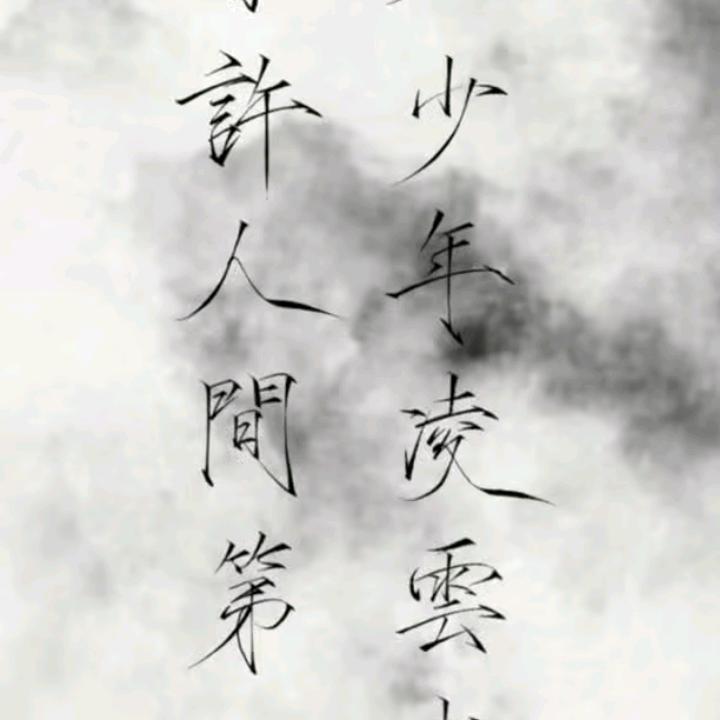 少年凌雲
許人間第